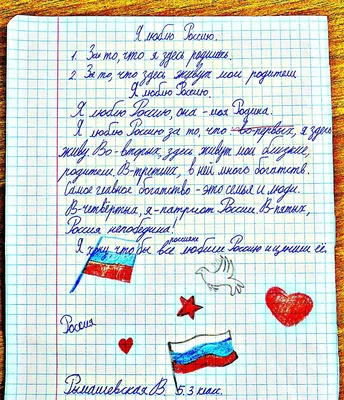 Я люблю Россию.
1. За то, что я здесь родилась.
2. За то, что здесь живут мои родители
Я люблю Россию.
Я люблю Россию, она - моя Родина.
Я люблю Россию за то, что во-первых, я здесь
живу. Во-вторых, здесь живут мои близкие,
родители. В-третьих, в ней много богатств.
Самое главное богатство - это семья и люди.
В-четвёртых, я - патриот России. В-пятых,
Россия непобедима!
Я хочу чтобы все россияне любили Россию и ценили её.
Россия
Рымашевская В. 5.3 класс.